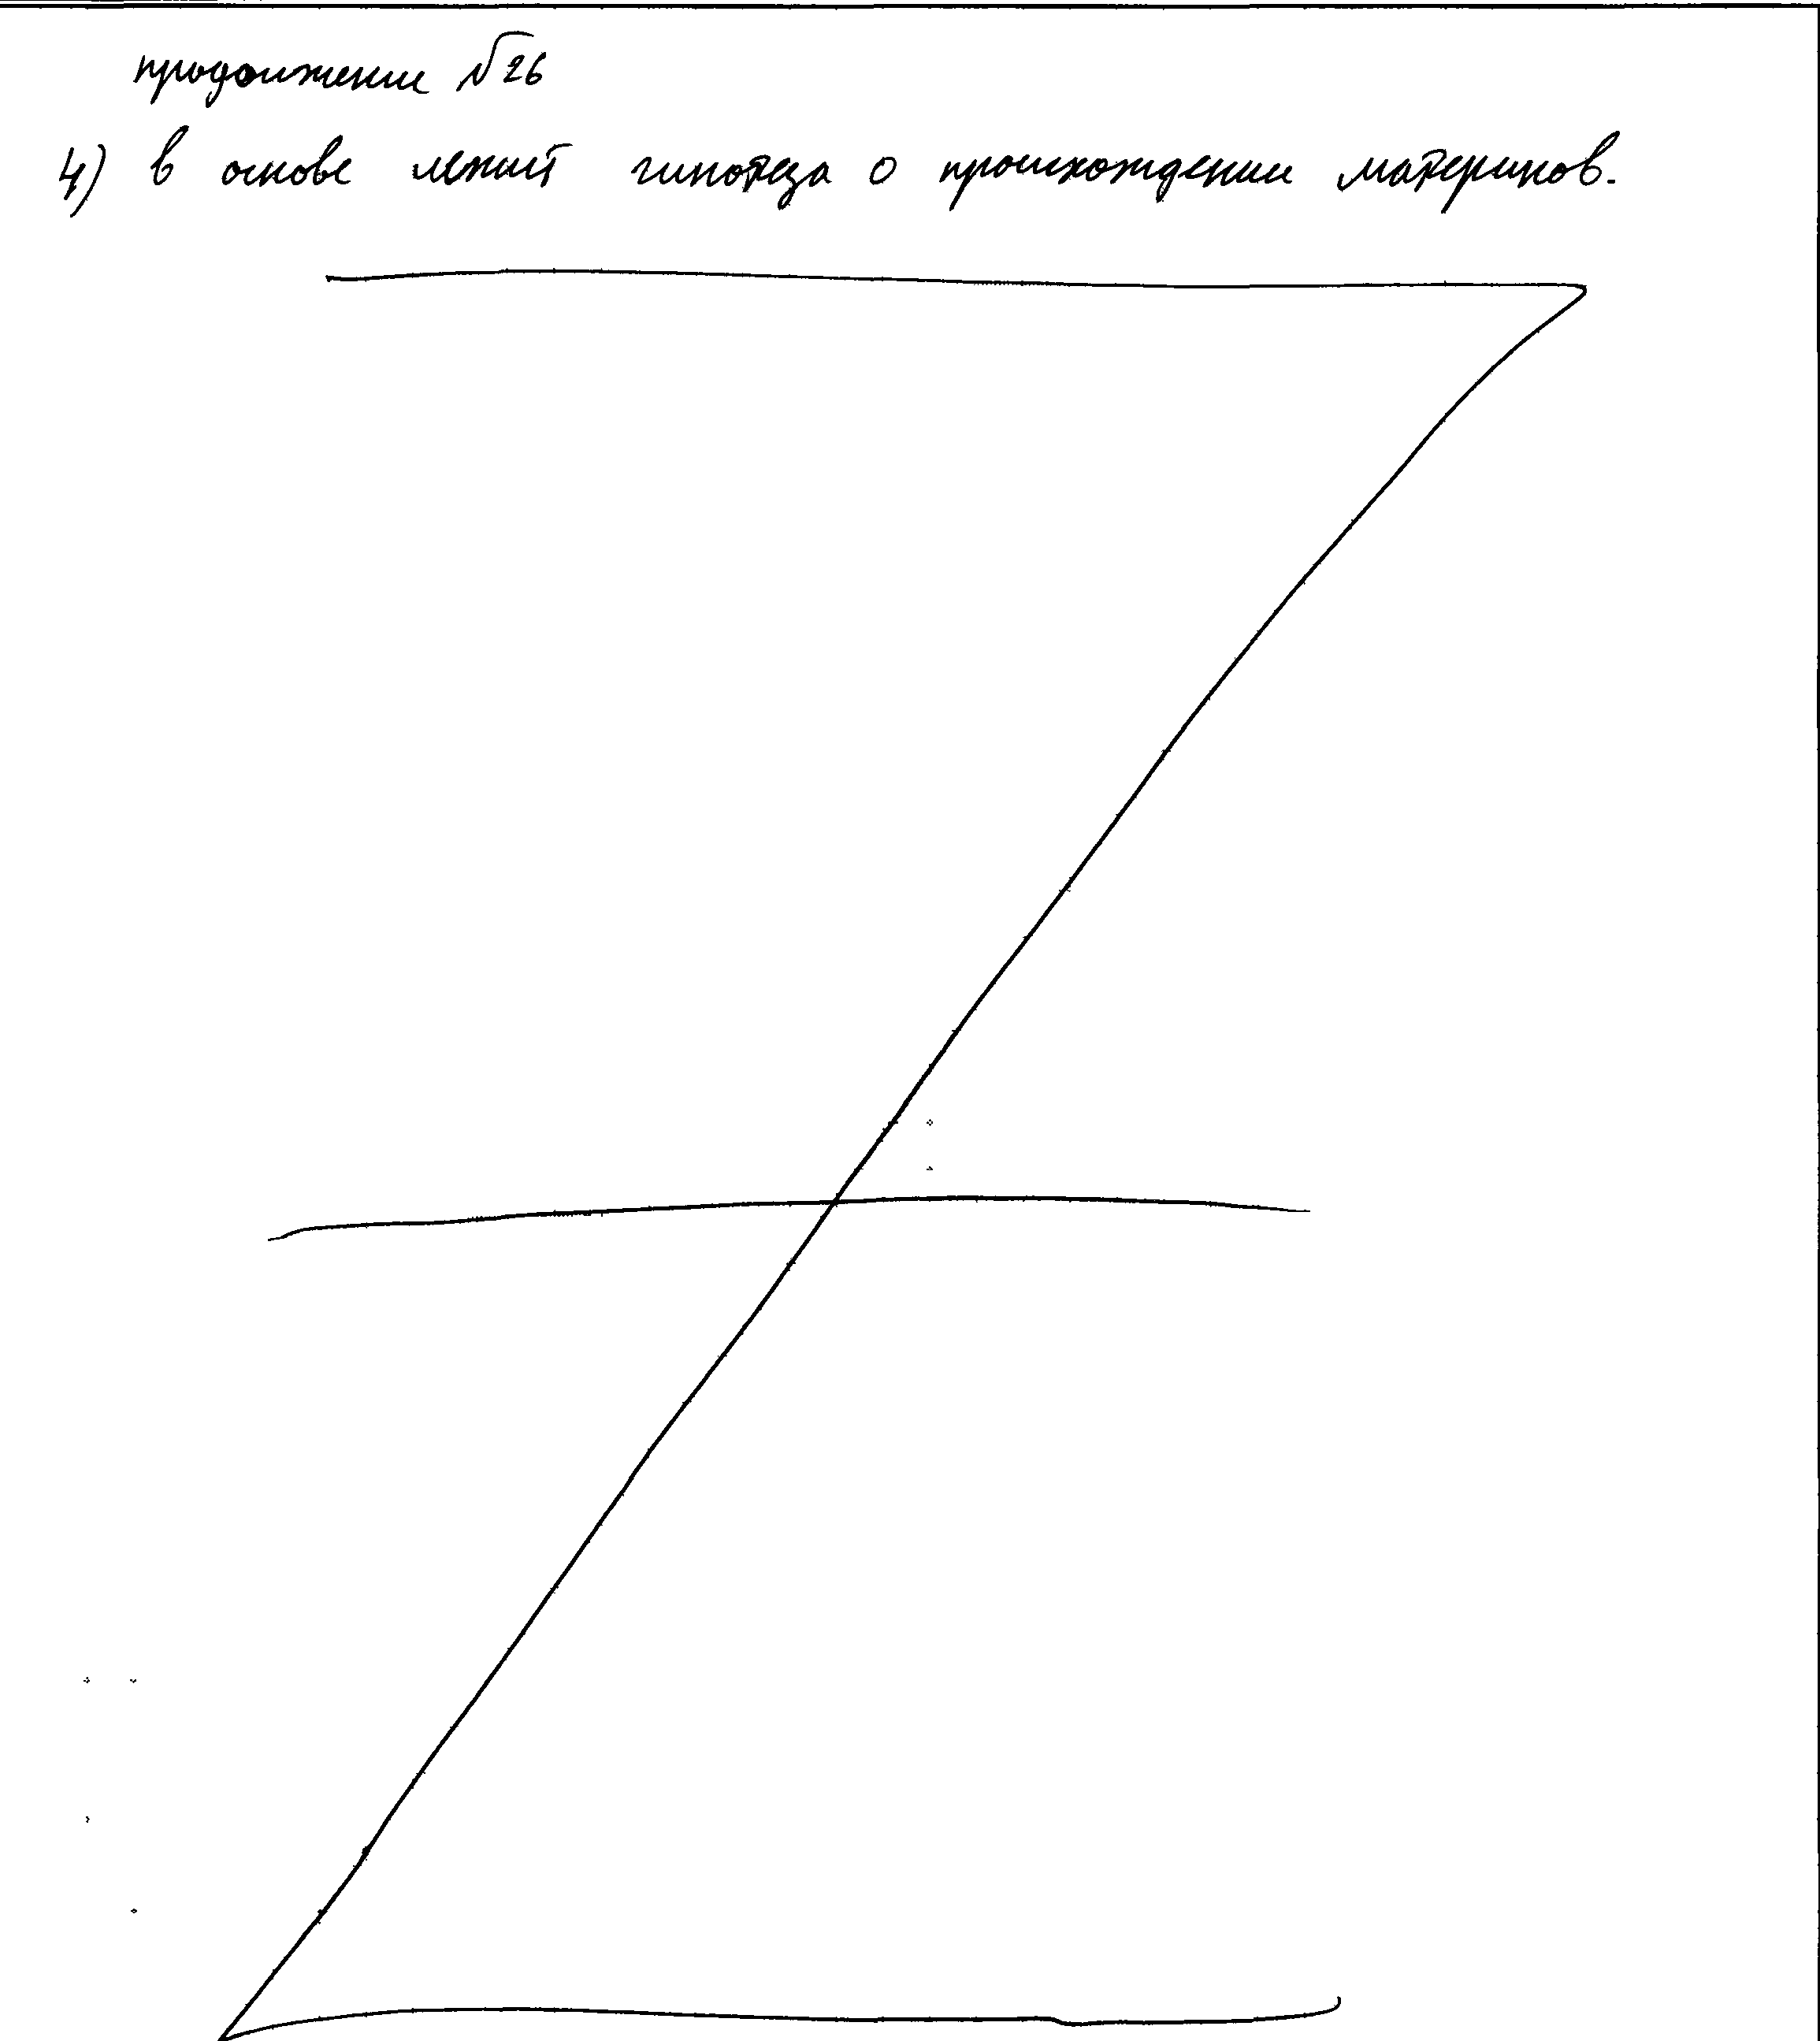 продолжение №26
4) в основе лежит гипотеза о происхождении материков.